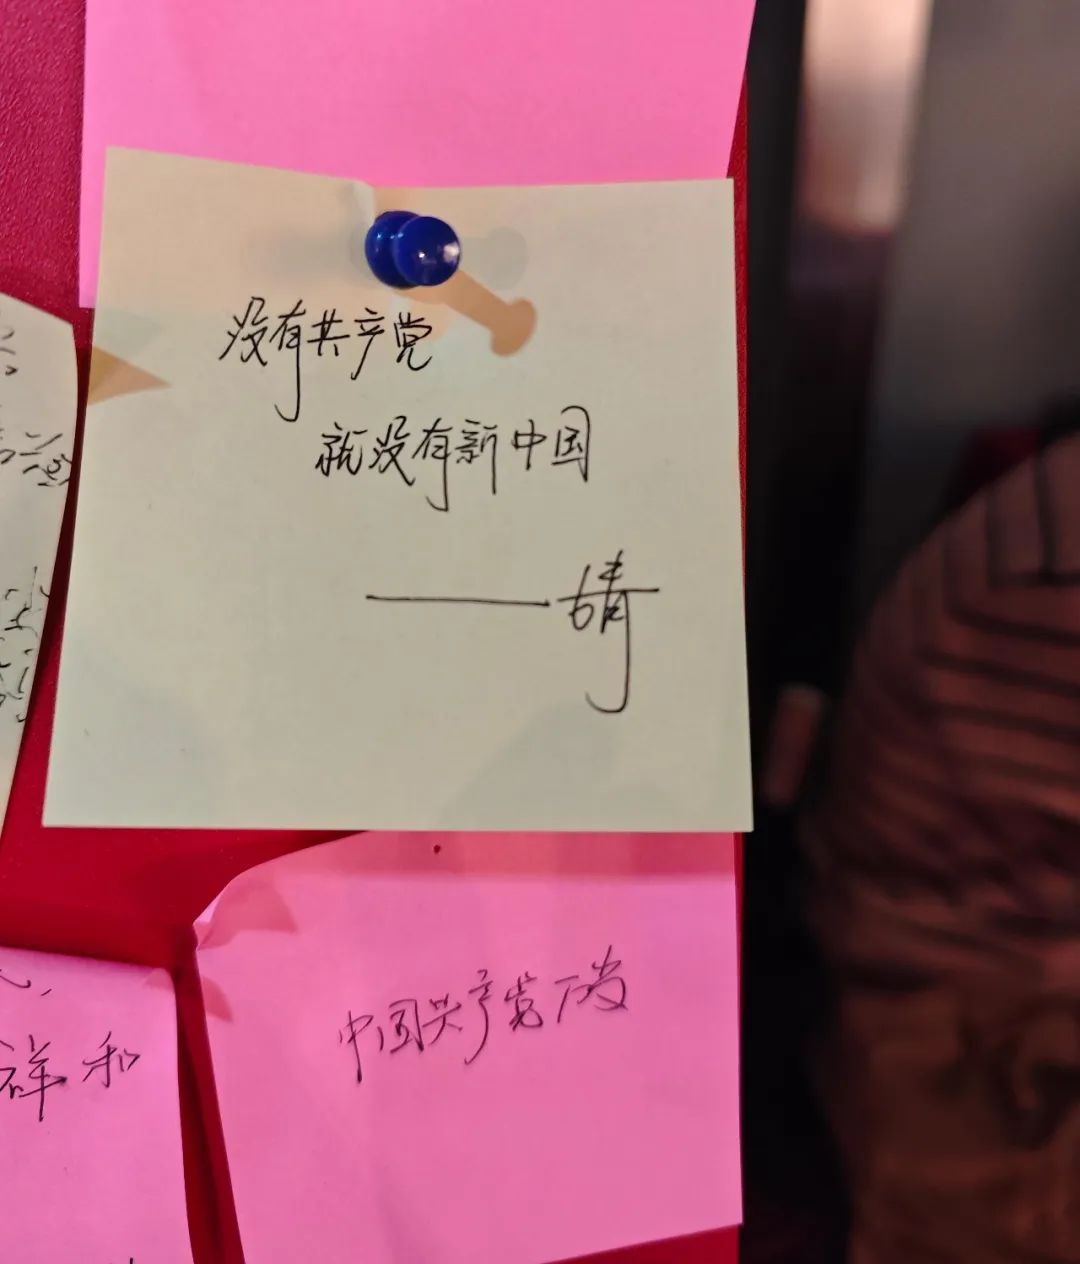 没有共产党
就没有新中国
——婧
中国共产党万岁
祥和